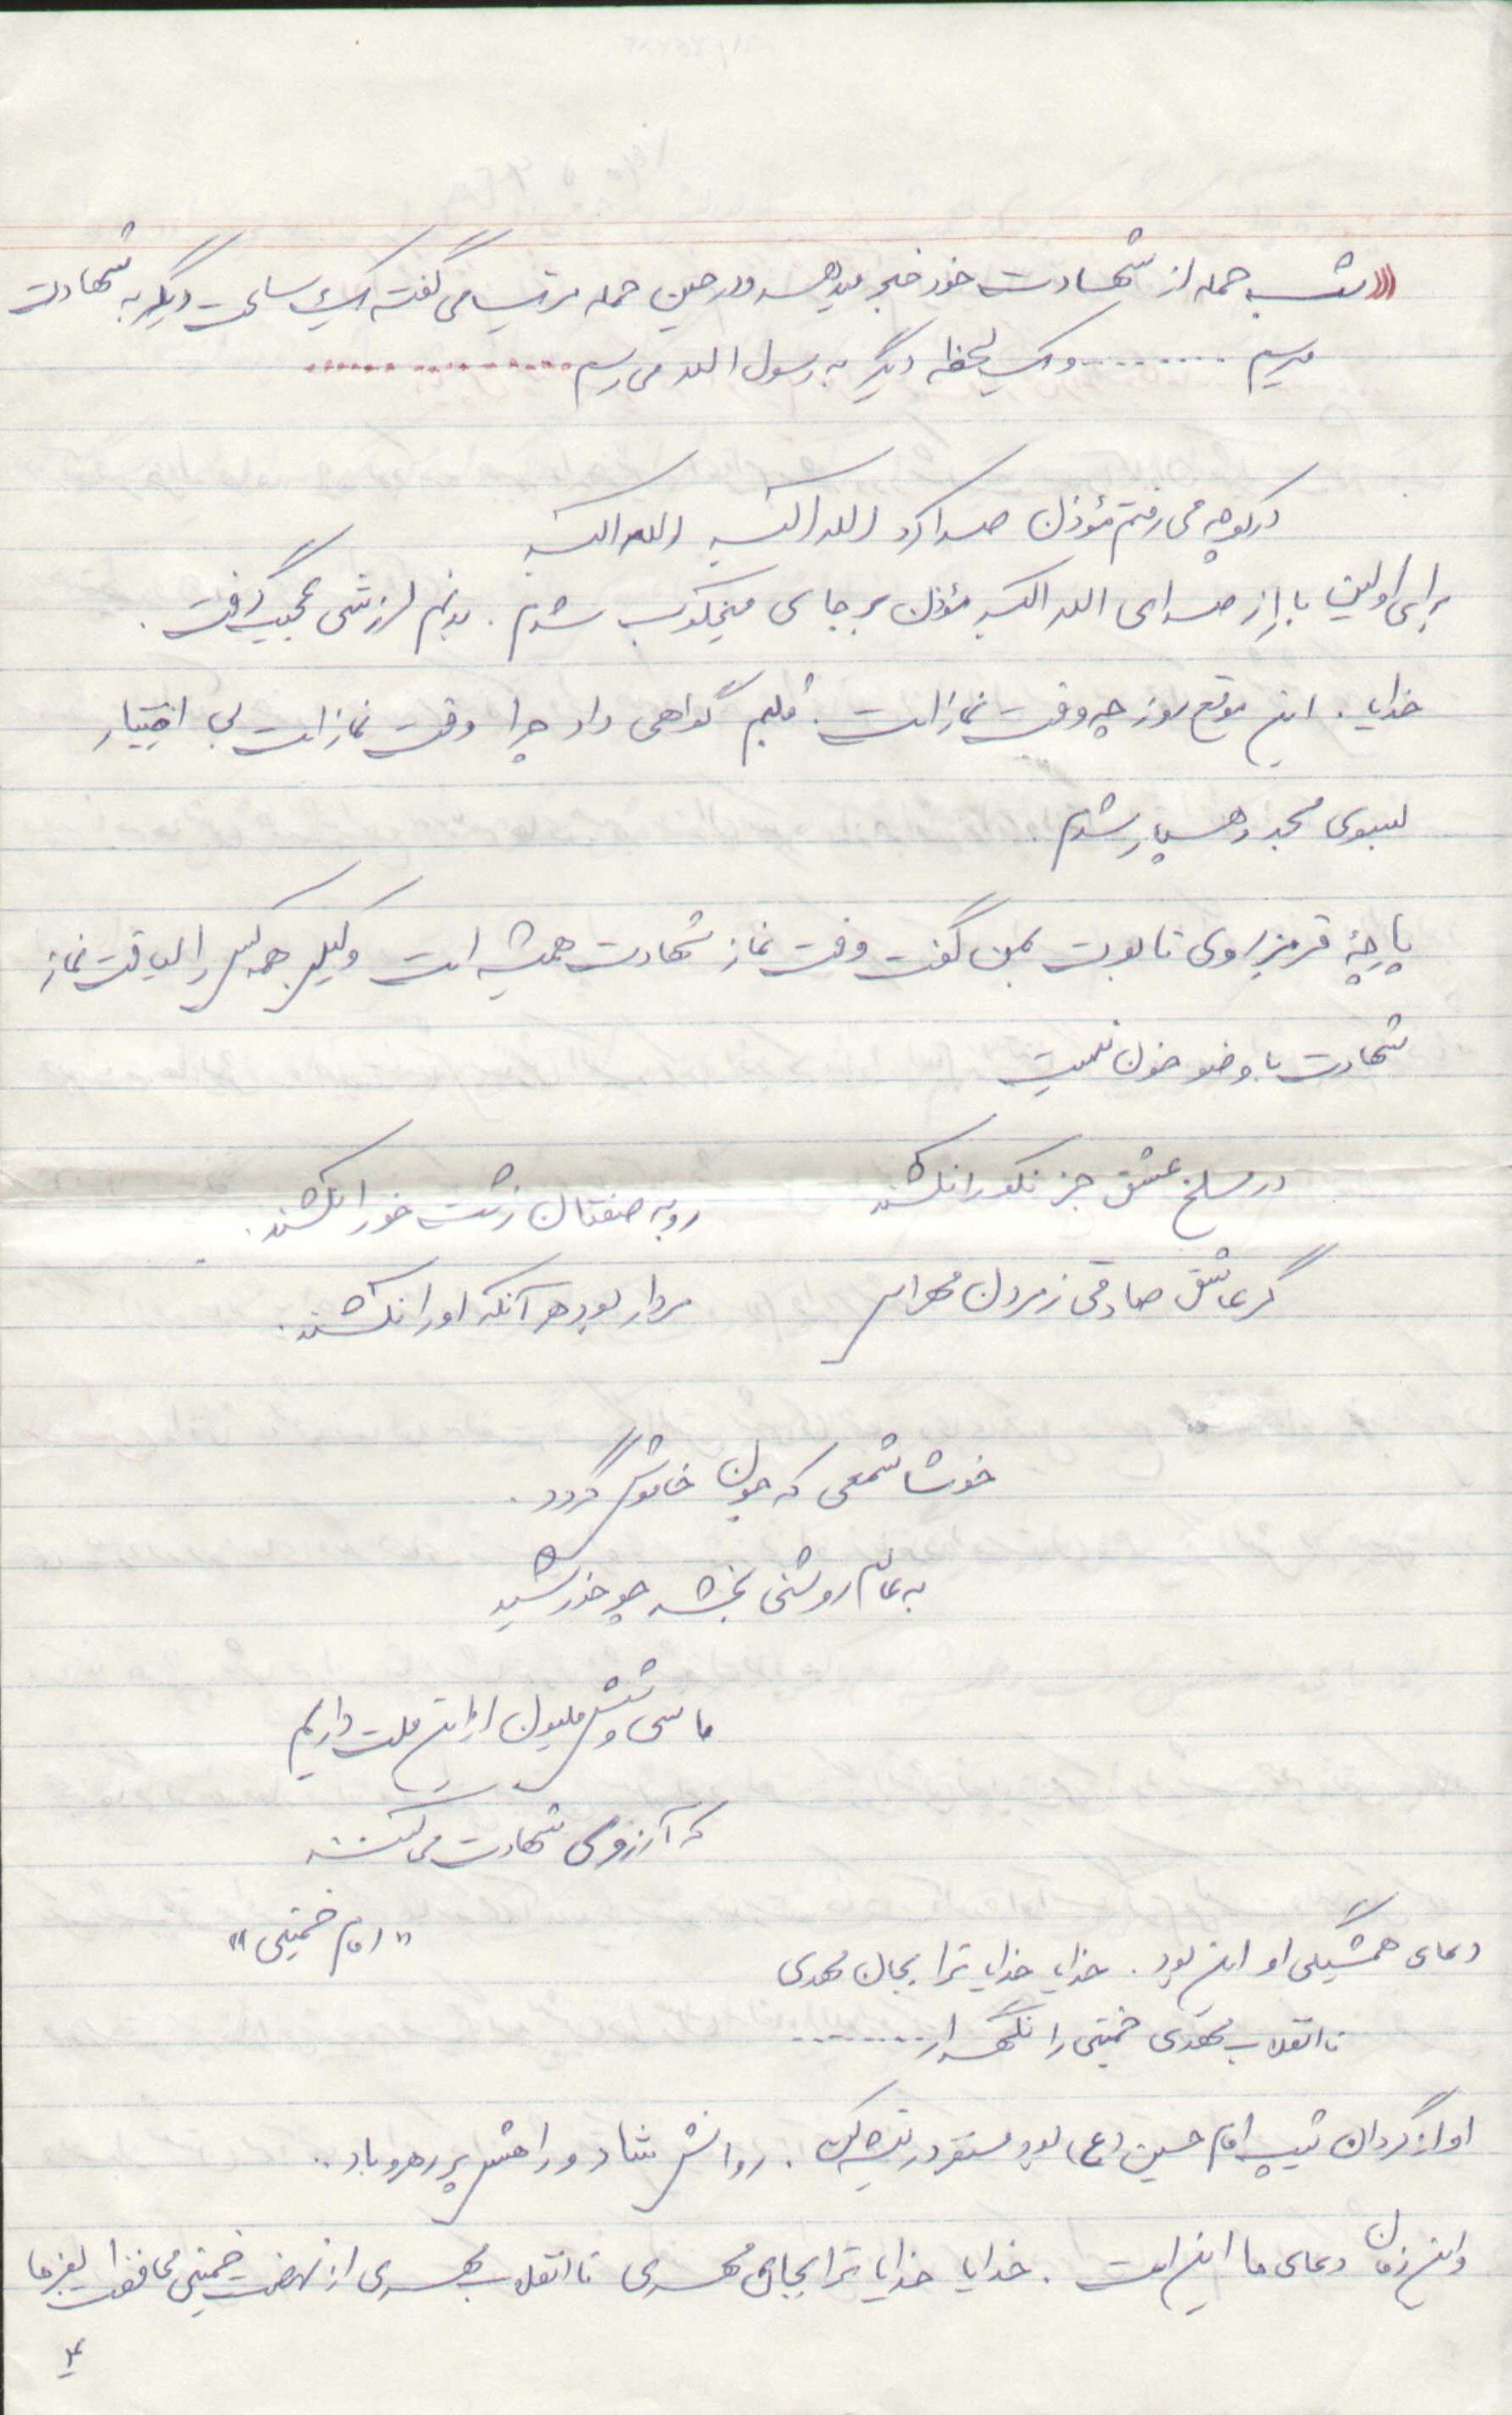 شب حمله از شهادت خود خبر میدهد و در حین حمله مرتب می گفت یک ساعت دیگر به شهادت
میرسم ......... و یک لحظه دیگر به رسول الله می رسم ...............
در کوچه می رفتم مؤذن صدا کرد الله اکبر الله اکبر
برای اولین بار از صدای الله اکبر مؤذن بر جای میخکوب شدم . بدنم لرزشی عجیب گرفت .
خدایا . این موقع روز چه وقت نماز است . قلبم گواهی داد چرا وقت نماز است بی اختیار
بسوی مسجد رهسپار شدم .
پارچهٔ قرمز روی تابوت بمن گفت وقت نماز شهادت همیشه است ولیکن همه کس را لیاقت نماز
شهادت با وضو خون نیست
در مسلخ عشق جز نکو را نکشند روبه صفتان زشت خو را نکشند .
گر عاشق صادقی ز مردن مهراس مردار بود هر آنکه او را نکشند .
خوشا شمعی که چون خاموش گردد .
به عالم روشنی بخشد چو خورشید
ما سی و شش ملیون از این ملت داریم
که آرزوی شهادت می کنند
«امام خمینی»
دعای همیشگی او این بود . خدایا خدایا ترا بجان مهدی
تا انقلاب مهدی خمینی را نگهدار .........
او از گردان تیپ امام حسین (ع) بود مستقر در . روانش شاد و راهش پر رهرو باد ..
و این زمان دعای ما این است . خدایا خدایا ترا بجان مهدی تا انقلاب مهدی از نهضت خمینی محافظت بفرما